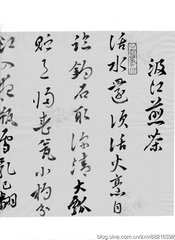 汲江煎茶
活水還須活火烹自
臨釣石取深清大瓢
貯月歸春瓮小杓分
江入夜瓶雪乳已翻
blog.sina.com.cn/zxm66216398